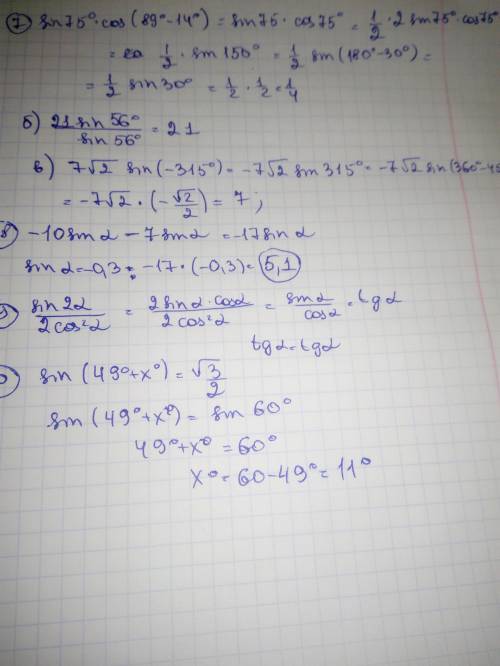 7) sin75°·cos(89°-14°) = sin75·cos75° = 1/2·2sin75°·cos75°
= 1/2·sin150° = 1/2 sin(180°-30°) =
= 1/2 sin30° = 1/2·1/2 = 1/4
б) 21sin56°/sin56° = 21
в) 7√2 sin(-315°) = -7√2 sin315° = -7√2 sin(360°-45
= -7√2·(-√2/2) = 7;
8) -10sinα - 7sinα = -17sinα
sinα = -0,3; -17·(-0,3) = 5,1
sin2α/2cos²α = 2sinα·cosα/2cos²α = sinα/cosα = tgα
tgα = tgα
sin(49°+x°) = √3/2
sin(49°+x°) = sin60°
49°+x° = 60°
x° = 60-49° = 11°